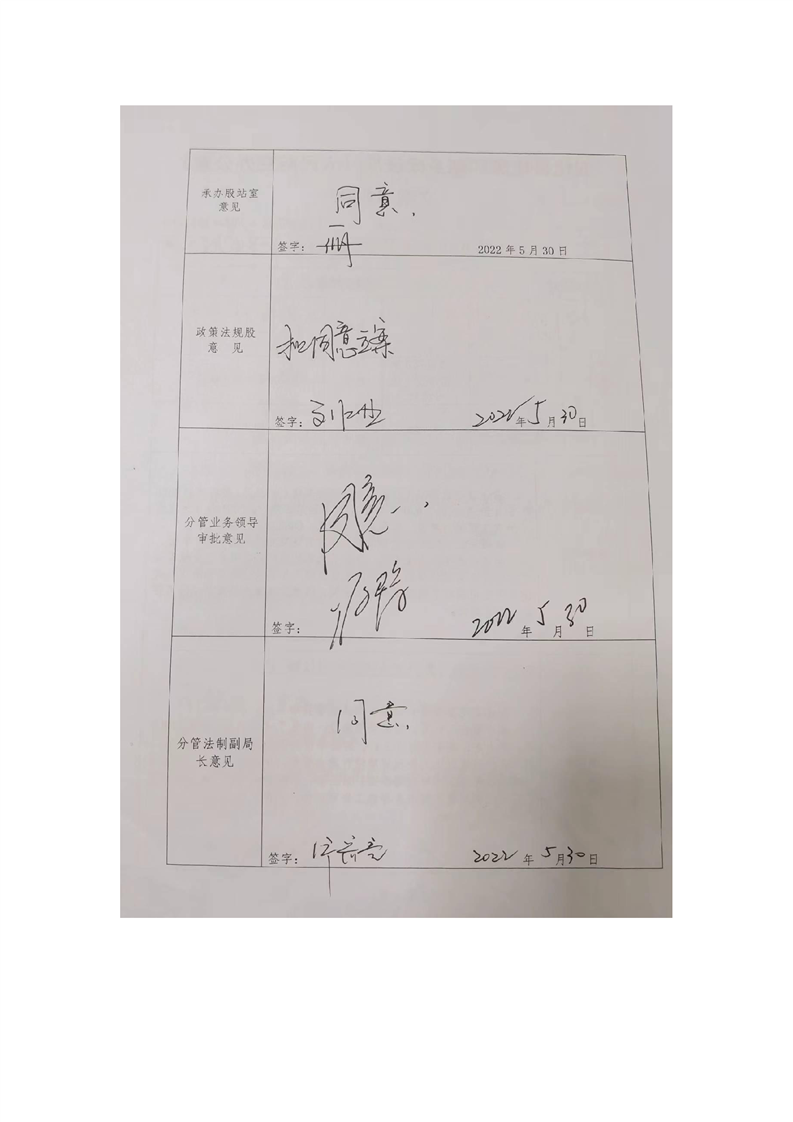 承办股站室
意见
同意.
签字:
2022年5月30日
政策法规股
意 见
拟同意立案
签字:
2022年5月30日
分管业务领导
审批意见
同意.
签字:
2022年5月30日
分管法制副局
长意见
同意.
签字:
2022年5月30日